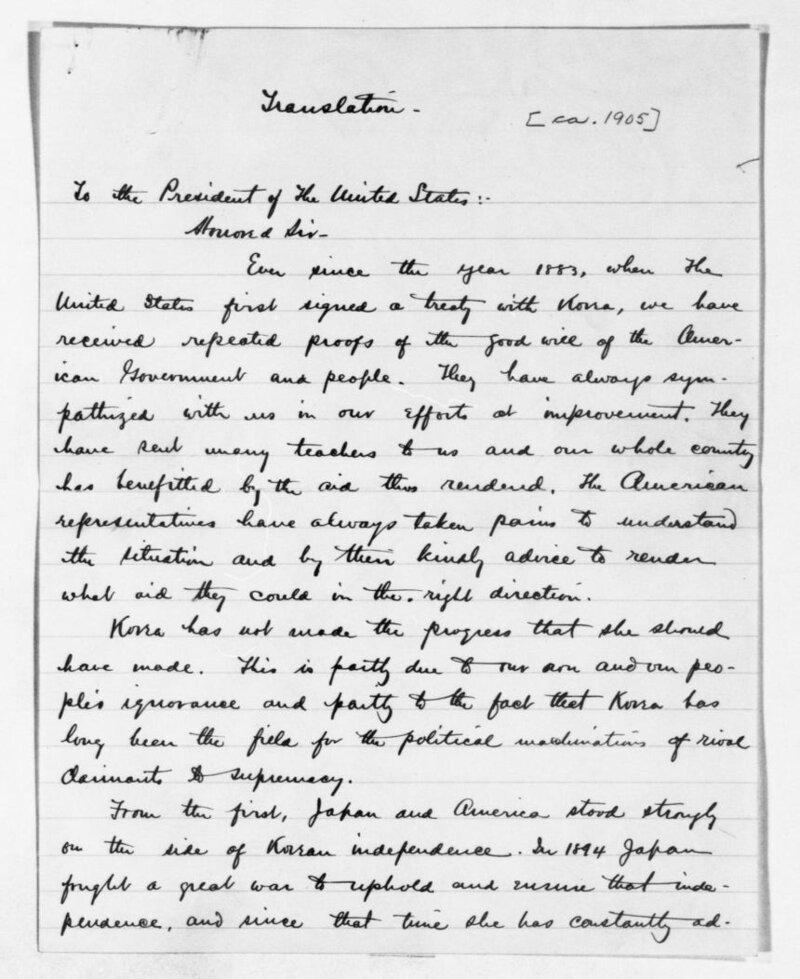 Translation -
[ca. 1905]
To the President of the United States:-
Honored Sir-
Ever since the year 1883, when the
United States first signed a treaty with Korea, we have
received repeated proofs of the good will of the Amer-
ican Government and people. They have always sym-
pathized with us in our efforts at improvement. They
have sent many teachers to us and our whole country
has benefitted by the aid thus rendered. The American
representatives have always taken pains to understand
the situation and by their kindly advice to render
what aid they could in the right direction.
Korea has not made the progress that she should
have made. This is partly due to our own and our peo-
ple's ignorance and partly to the fact that Korea has
long been the field for the political machinations of rival
claimants to supremacy.
From the first, Japan and America stood strongly
on the side of Korean independence. In 1894 Japan
fought a great war to uphold and ensure that inde-
pendence, and since that time she has constantly ad-